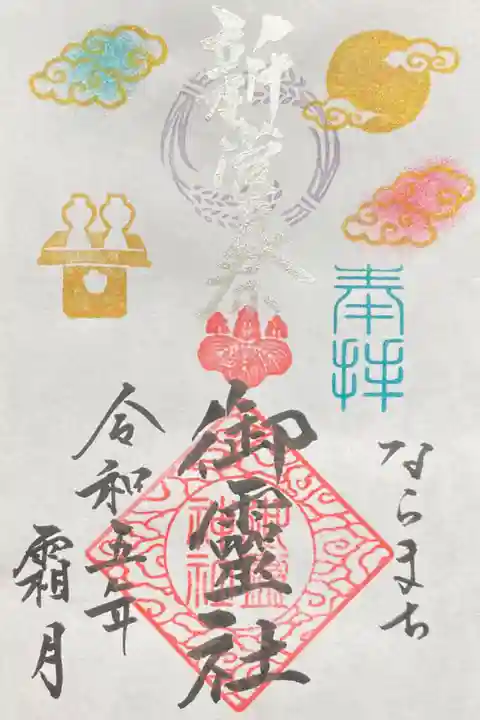 新嘗祭
奉拝
ならまち
御靈社
御靈神社
令和五年
霜月